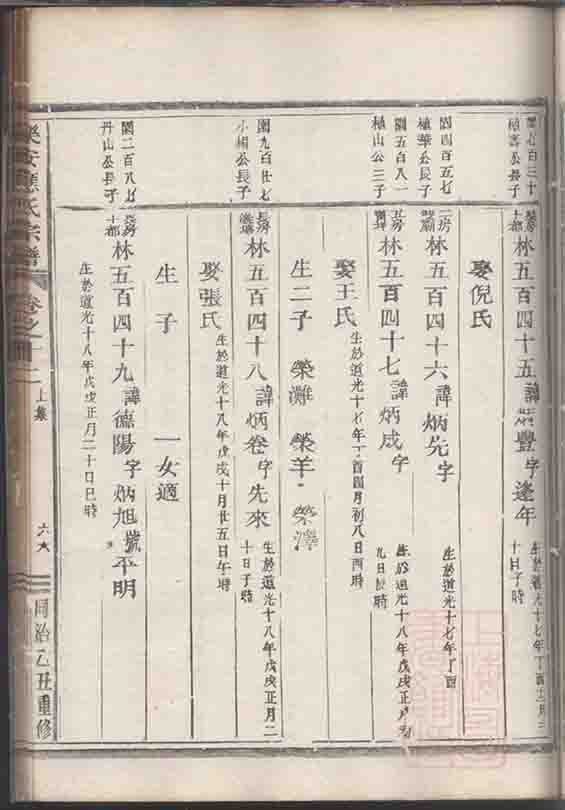 林五百四十五諱炳豐字逢年
娶倪氏
圖四百五七
植華公長子
二房
林五百四十六諱炳先字
生於道光十七年丁酉
圖五百八一
植山公三子
林五百四十七諱炳成字
生於道光十八年戊戌正月
九日 時
娶王氏
生於道光十七年丁酉四月初八日酉時
生二子 榮灘 榮羊 榮澤
圖九百廿七
小楣公長子
長房
林五百四十八諱炳卷字先來
生於道光十八年戊戌正月二
十日子時
娶張氏
生於道光十八年戊戌十月廿五日午時
生子 一女適
圖二百八七
丹山公長子
長房
十都
林五百四十九諱德陽字炳旭號平明
生於道光十八年戊戌正月二十日巳時
樂安 氏宗譜 卷之 二
上集
六
同治乙丑重修